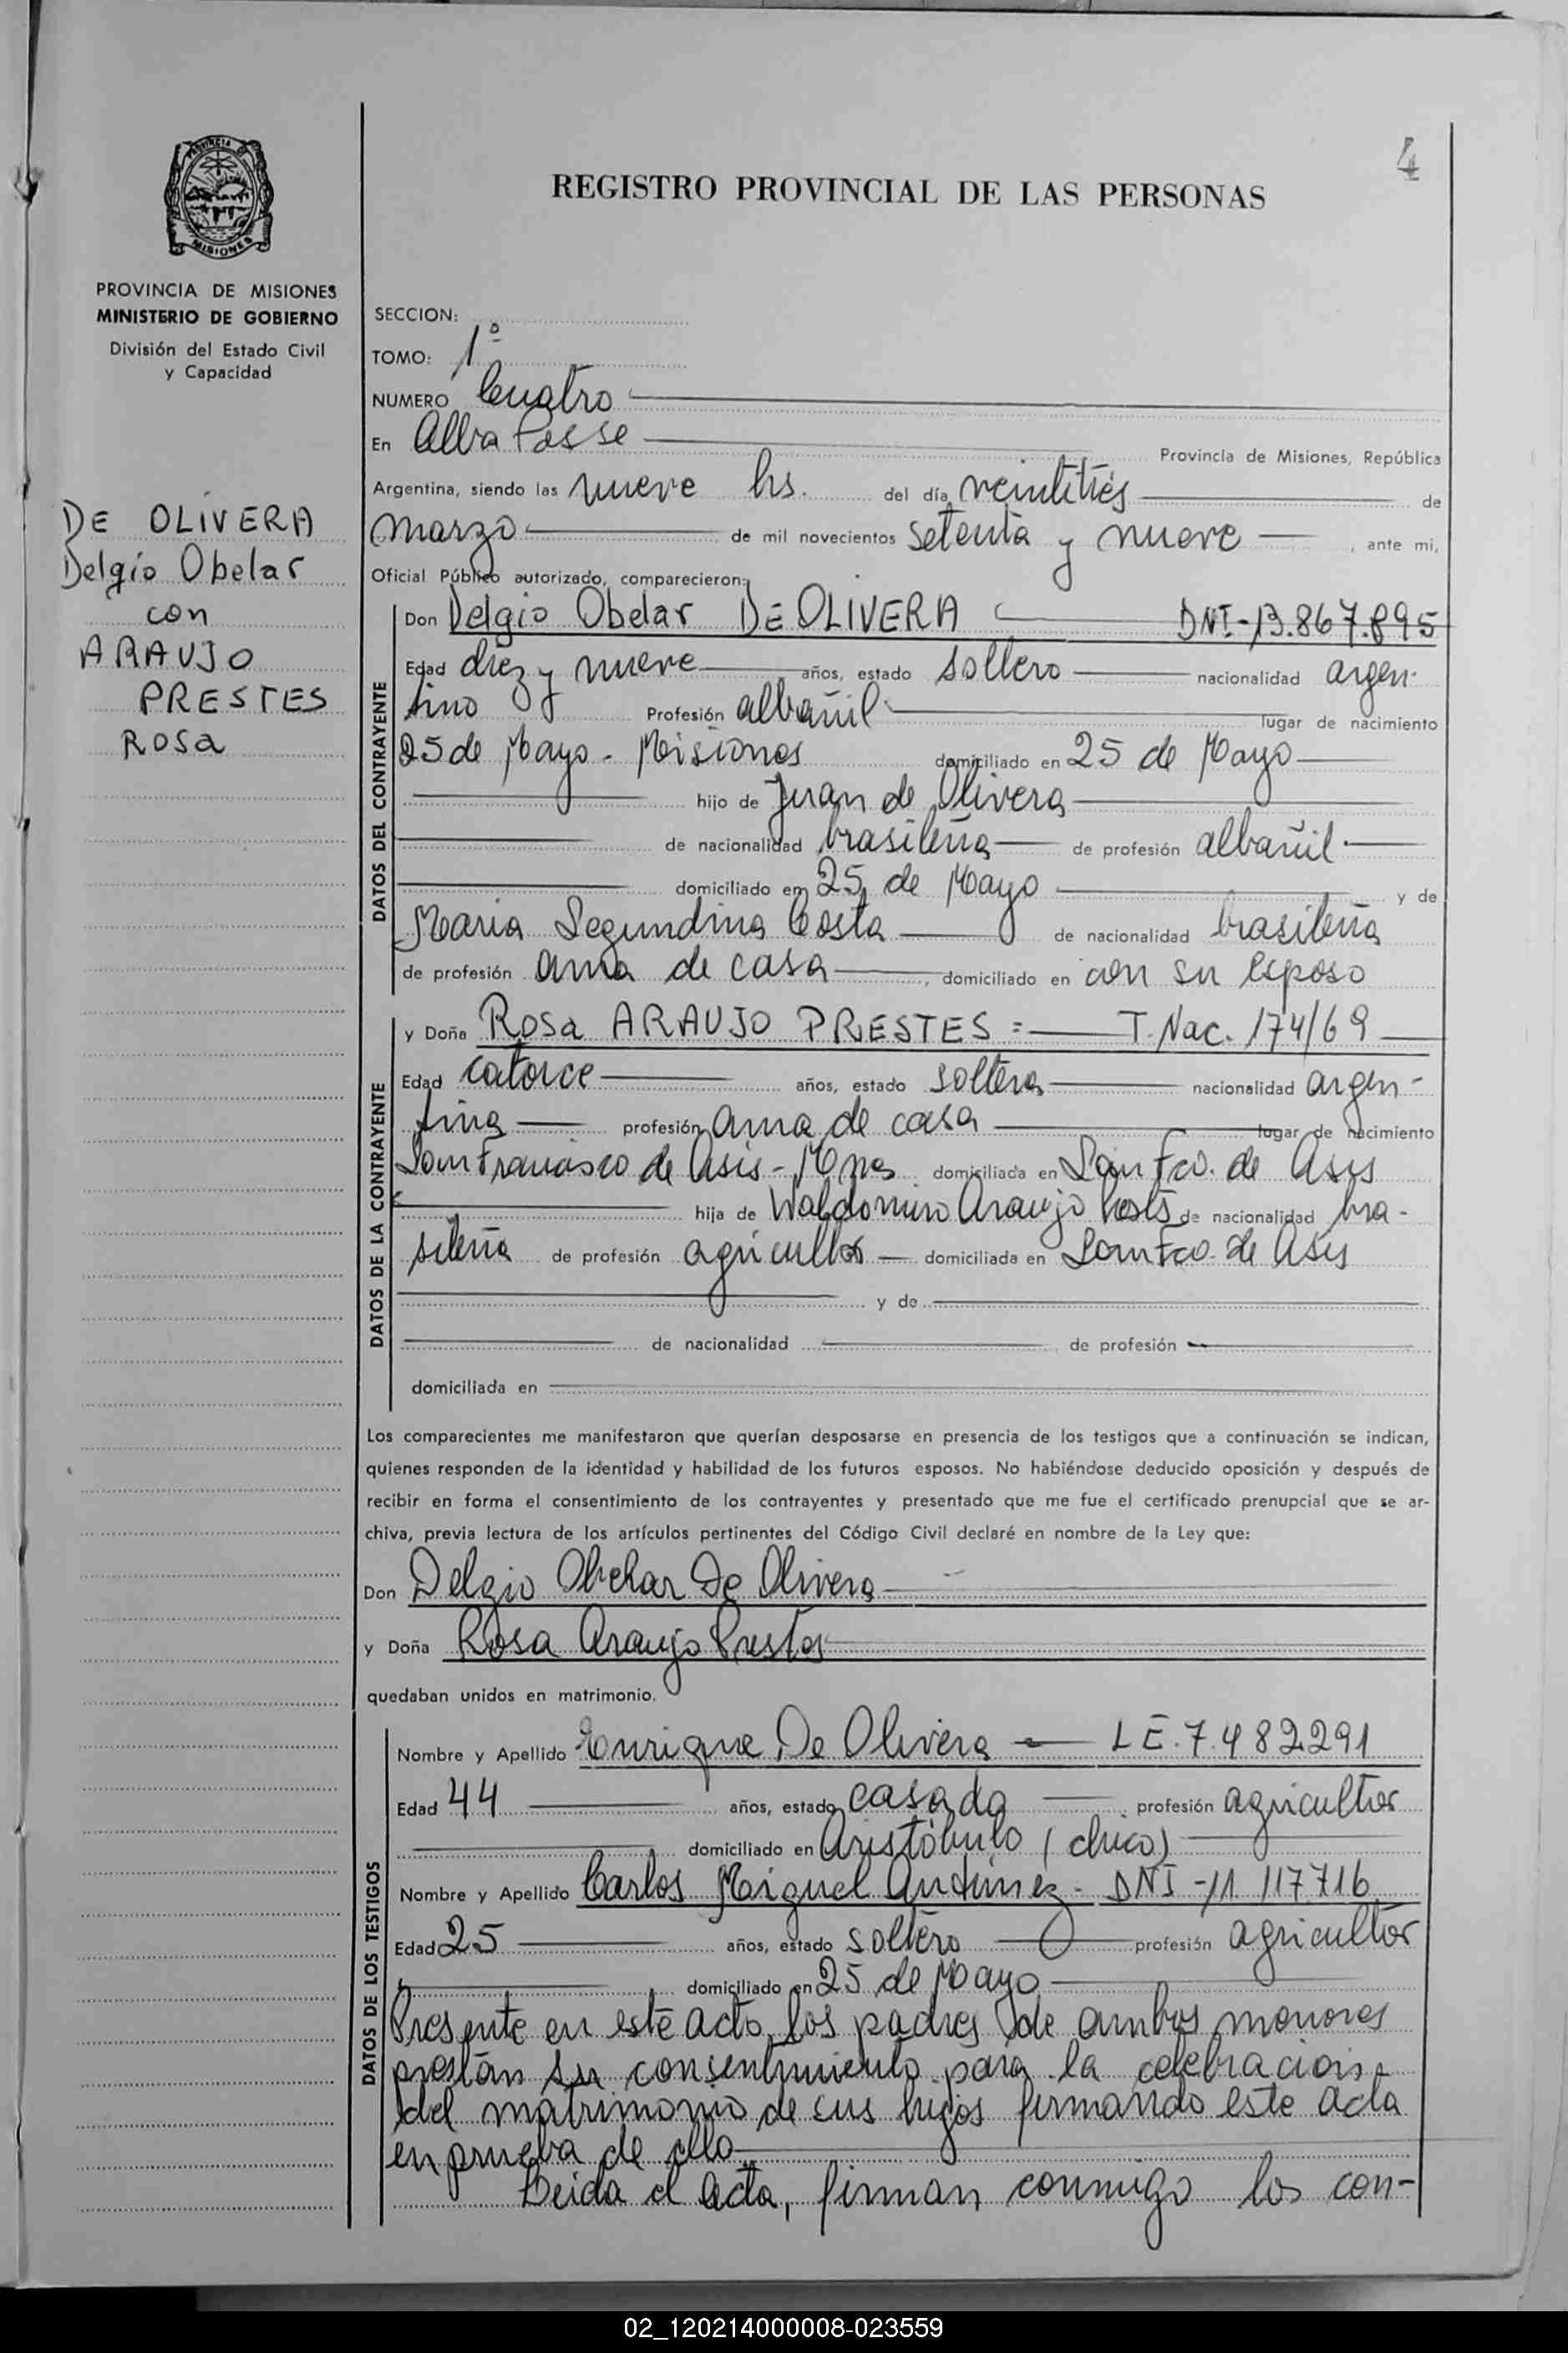 4
REGISTRO PROVINCIAL DE LAS PERSONAS
PROVINCIA DE
MISIONES
PROVINCIA DE MISIONES
MINISTERIO DE GOBIERNO
División del Estado Civil
y Capacidad
DE OLIVERA
Delgio Obelar
con
ARAUJO
PRESTES
Rosa
SECCION:
TOMO: 1º
NUMERO Cuatro
En Alba Posse Provincia de Misiones, República
Argentina, siendo las nueve hs. del día veintitrés de
marzo de mil novecientos setenta y nueve , ante mi,
Oficial Público autorizado, comparecieron:
DATOS DEL CONTRAYENTE
Don Delgio Obelar DE OLIVERA DNI-13.867.895
Edad diez y nueve años, estado soltero nacionalidad argen-
tino Profesión albañil lugar de nacimiento
25 de Mayo - Misiones domiciliado en 25 de Mayo
hijo de Juan de Olivera
de nacionalidad brasileña de profesión albañil
domiciliado en 25 de Mayo y de
Maria Segundina Costa de nacionalidad brasileña
de profesión ama de casa , domiciliado en con su esposo
DATOS DE LA CONTRAYENTE
y Doña Rosa ARAUJO PRESTES = T. Nac. 174/69
Edad catorce años, estado soltera nacionalidad argen-
tina profesión ama de casa lugar de nacimiento
San Francisco de Asis - Mnes domiciliada en San Fco. de Asis
hija de Waldomiro Araujo de nacionalidad bra-
sileña de profesión agricultor domiciliada en San Fco. de Asis
y de
de nacionalidad de profesión
domiciliada en
Los comparecientes me manifestaron que querían desposarse en presencia de los testigos que a continuación se indican,
quienes responden de la identidad y habilidad de los futuros esposos. No habiéndose deducido oposición y después de
recibir en forma el consentimiento de los contrayentes y presentado que me fue el certificado prenupcial que se ar-
chiva, previa lectura de los artículos pertinentes del Código Civil declaré en nombre de la Ley que:
Don Delgio Obelar De Olivera
y Doña Rosa Araujo Prestes
quedaban unidos en matrimonio.
DATOS DE LOS TESTIGOS
Nombre y Apellido Enrique De Olivera LE. 7.482291
Edad 44 años, estado casado profesión agricultor
domiciliado en Aristóbulo (chico)
Nombre y Apellido Carlos Miguel Antúnez - DNI - 11 117.716
Edad 25 años, estado soltero profesión agricultor
domiciliado en 25 de Mayo
Presente en este acto los padres de ambos menores
prestan su consentimiento para la celebración
del matrimonio de sus hijos firmando este acta
en prueba de ello
Leida el acta, firman conmigo los con-
02_120214000008-023559